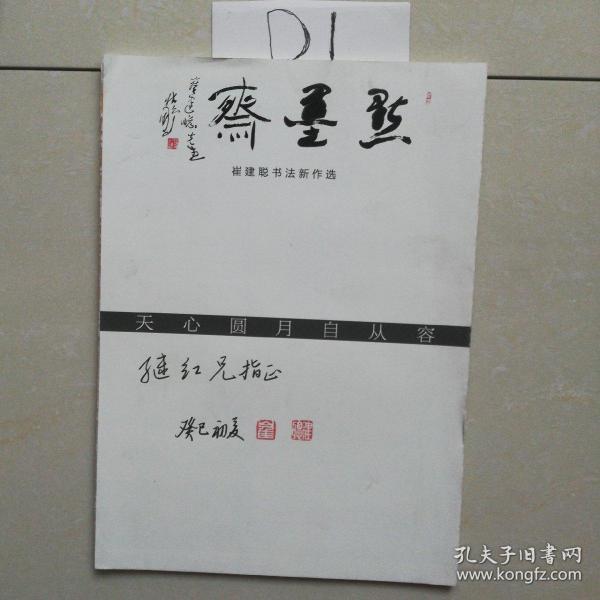 D1
墨齋
崔建聪
崔建聪书法新作选
天心圆月自从容
继红兄指正
癸巳初夏
孔夫子旧书网
www.kongfz.com